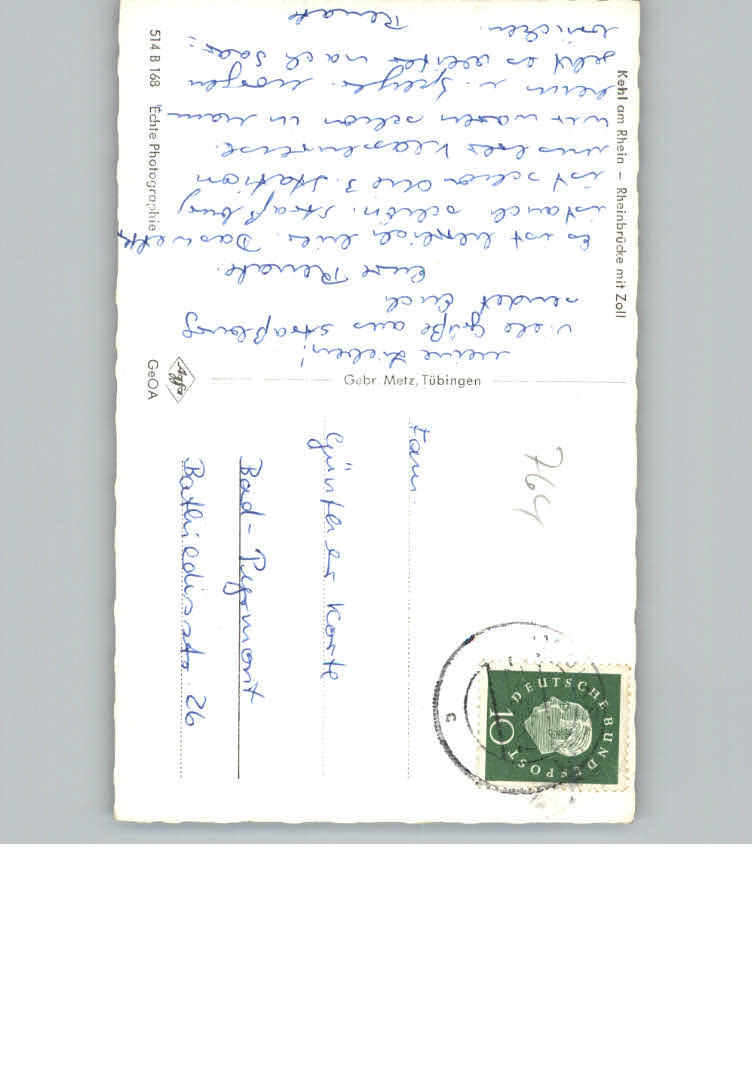 Kehl am Rhein – Rheinbrücke mit Zoll
meine Lieben!
Viele Grüße aus Straßburg
sendet Euch
Eure Renate.
Es ist herrlich hier. Das Wetter
ist auch schön. Straßburg
ist schon die 3. Station
unserer Klassenreise.
wir waren schon in Mann
heim u. Speyer. Morgen
geht es weiter nach Saar-
brücken.
Renate
514 B 168 Echte Photographie
Gebr. Metz, Tübingen
Agfa
GeOA
764
DEUTSCHE BUNDESPOST
10
Fam.
Günther Korte
Bad-Pyrmont
Bathildisstr. 26